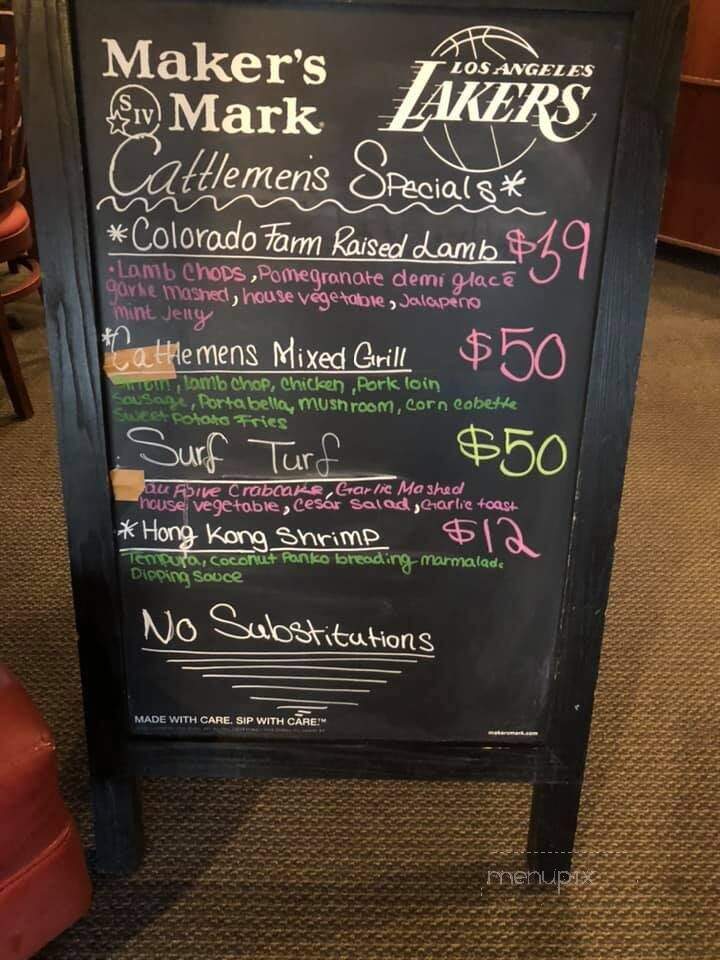 Maker's
Mark
S IV
LOS ANGELES
LAKERS
Cattlemen's Specials*
*Colorado Farm Raised Lamb $39
•Lamb Chops, Pomegranate demi glacé
mashed, house vegetable, Jalapeno
mint Jelly
*Cattlemens Mixed Grill $50
lamb chop, chicken, Pork loin
Sausage, Portabella, mushroom, corn cobette
Sweet Potato Fries
Surf Turf $50
Crabcake, Garlic Mashed
house vegetable, Cesar Salad, Garlic toast
*Hong Kong Shrimp $12
Tempura, coconut Panko breading marmalade
Dipping Sauce
No Substitutions
MADE WITH CARE. SIP WITH CARE.™
makersmark.com
menupix